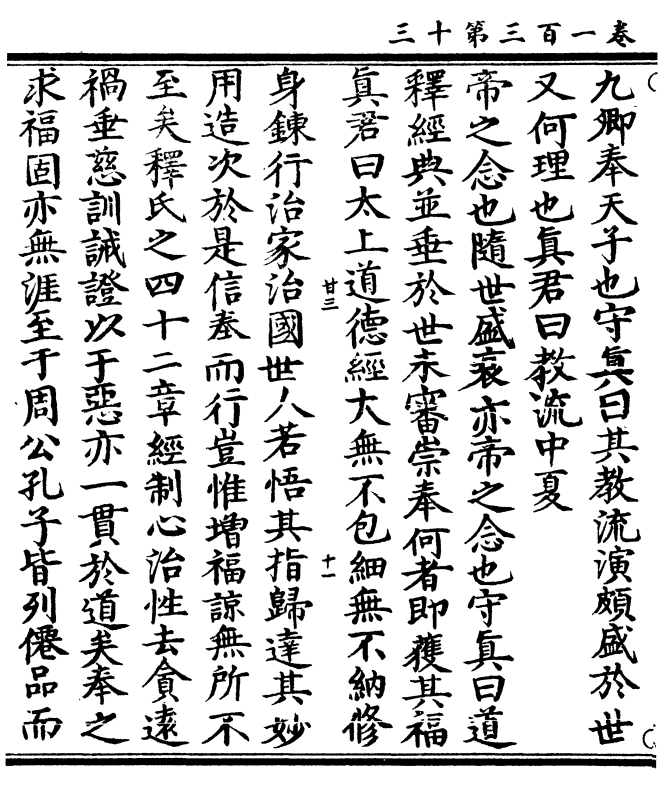 三十第三百一卷
九卿奉天子也守真曰其教流演頗盛於世
又何理也真君曰教流中夏
帝之念也隨世盛衰亦帝之念也守真曰道
釋經典並垂於世未審崇奉何者即獲其福
真君曰太上道德經大無不包細無不納修
甘三
十一
身鍊行治家治國世人若悟其指歸達其妙
用造次於是信奉而行豈惟增福諒無所不
至矣釋氏之四十二章經制心治性去貪遠
禍垂慈訓誡證以于惡亦一貫於道矣奉之
求福固亦無涯至于周公孔子皆列僊品而